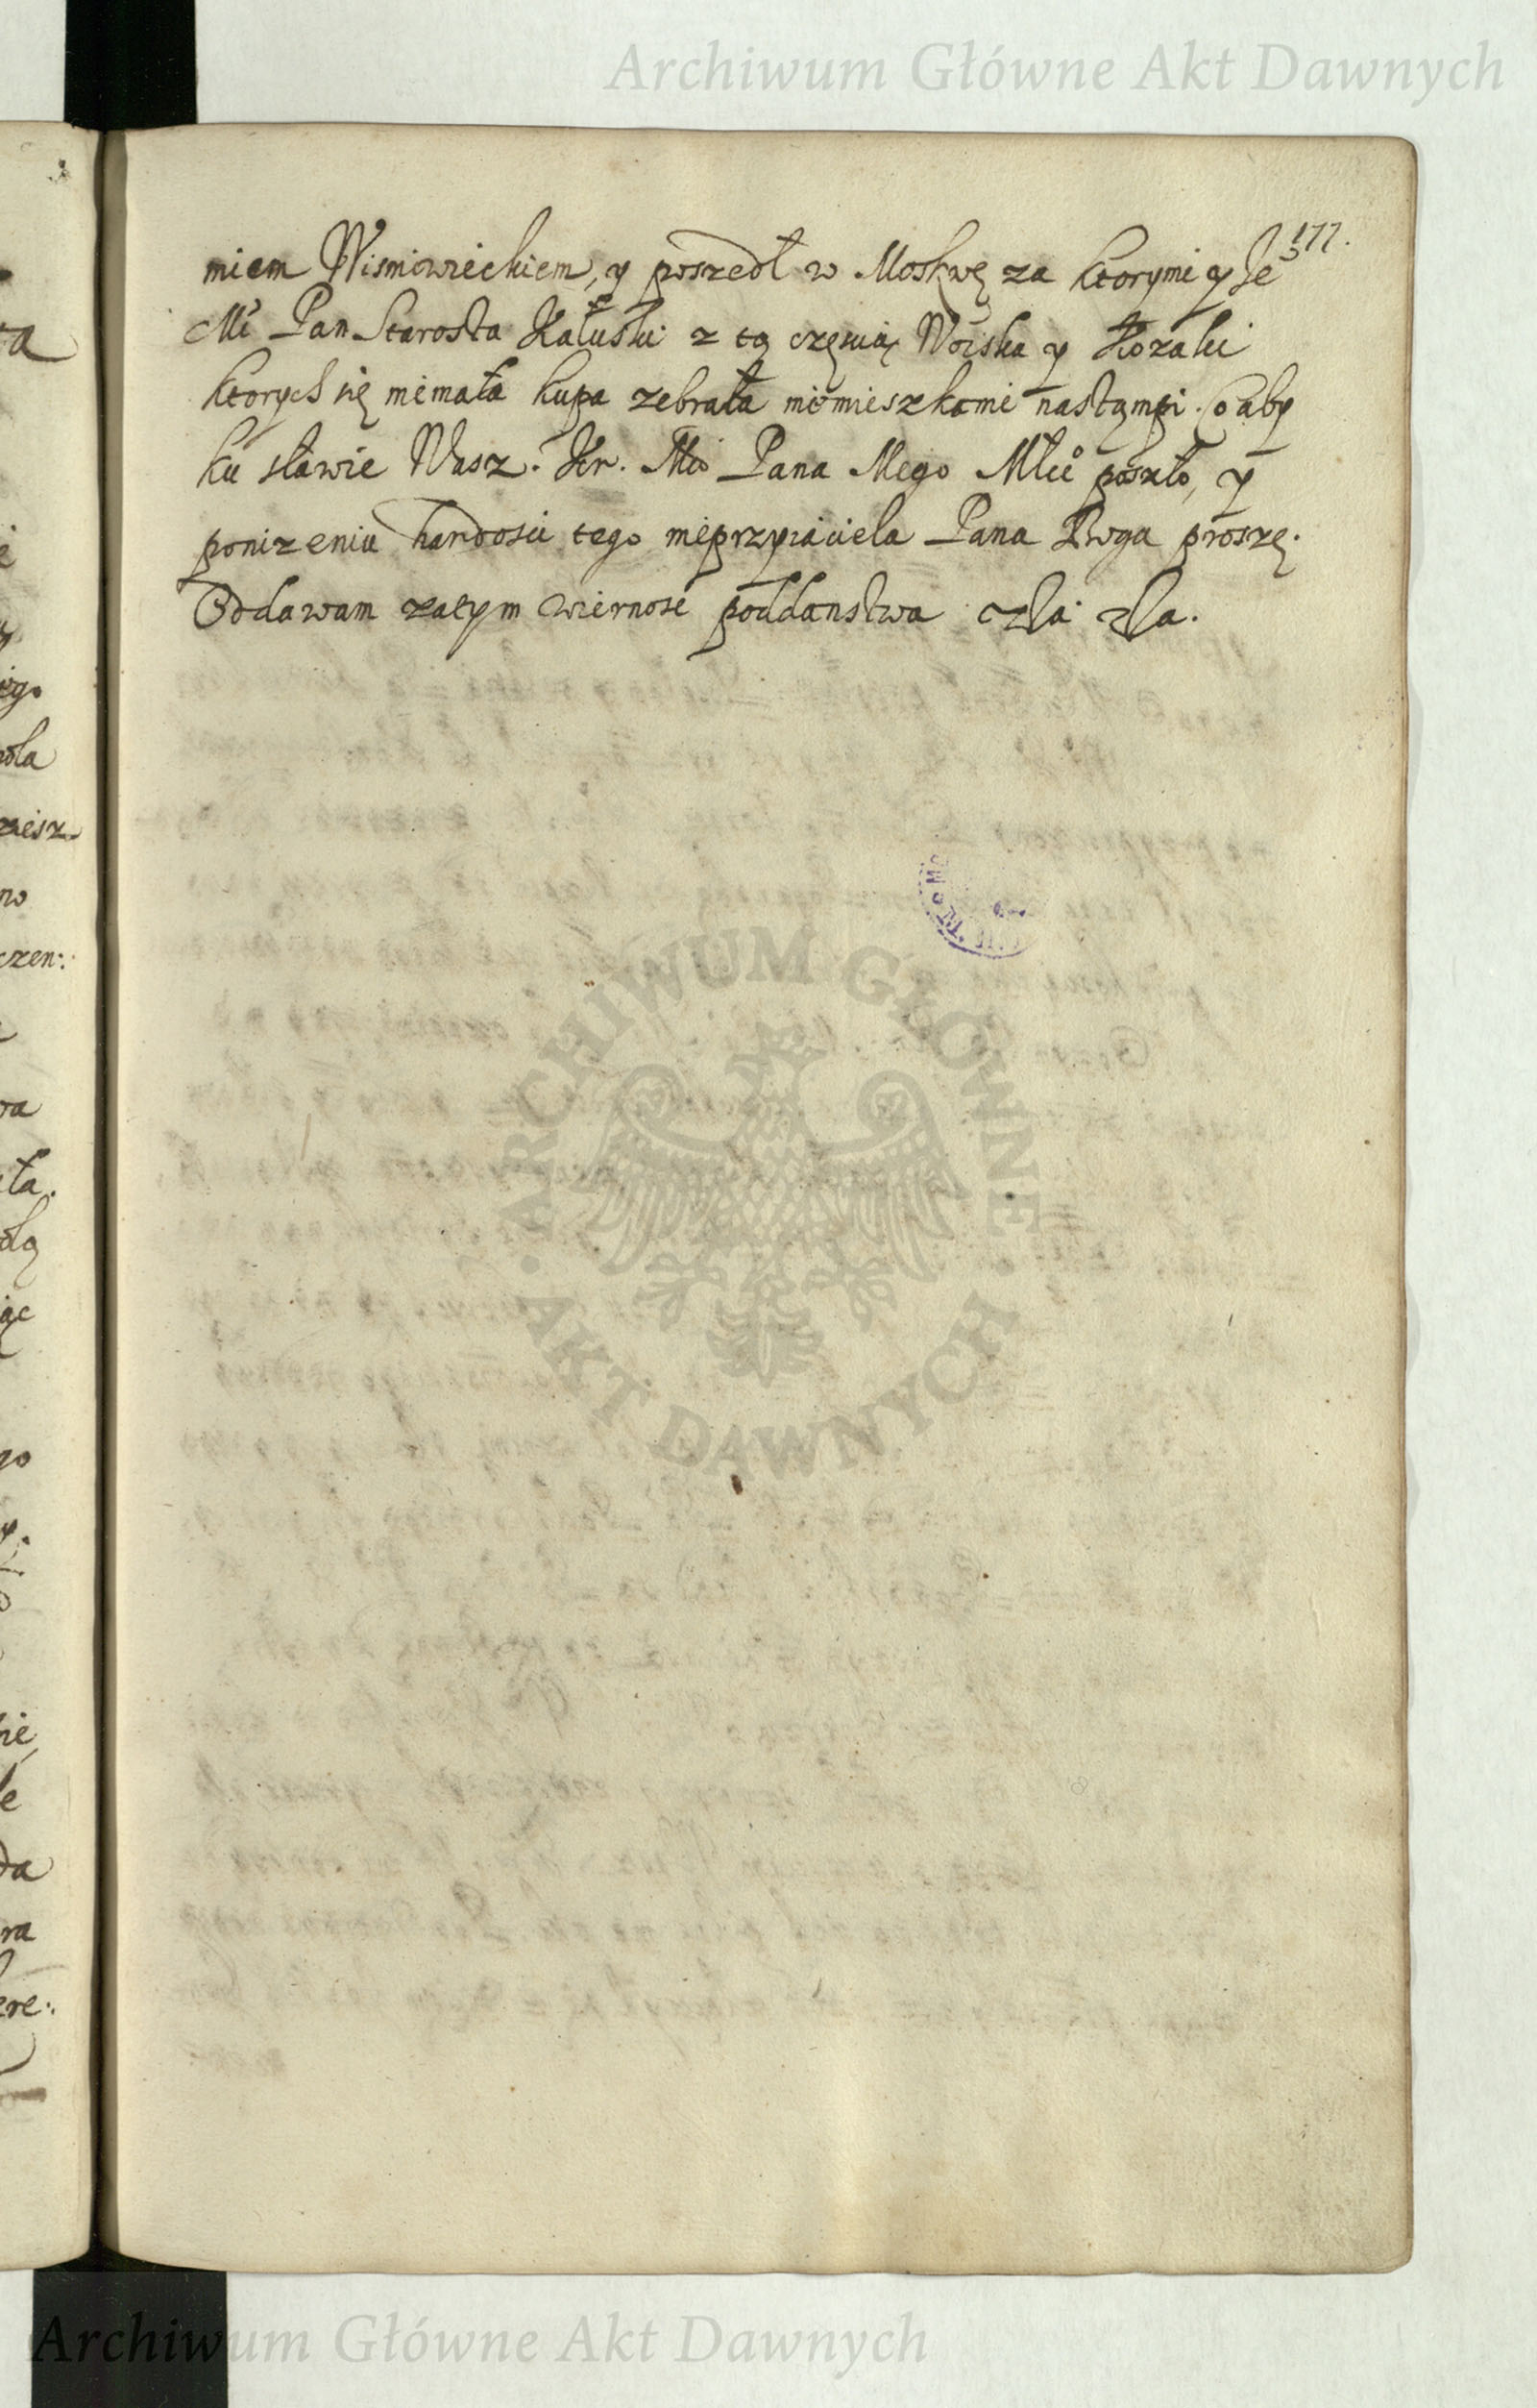 Archiwum Główne Akt Dawnych
177.
niem Wisniowieckiem, y poszedł w Moskwę za ktorymi y Je
Mć Pan Starosta Kałuski z tą częscią Woiska y Kozaki
ktorych się niemała kupa zebrała niomieszkanie nastąmpi. Co aby
ku sławie Wasz. Kr. Mci Pana Mego Młć poszło, y
ponizeniu hardosci tego nieprzyiaciela Pana Boga proszę.
Oddawam zatym wiernosc poddanstwa
ARCHIWUM GŁÓWNE
AKT DAWNYCH
Archiwum Główne Akt Dawnych